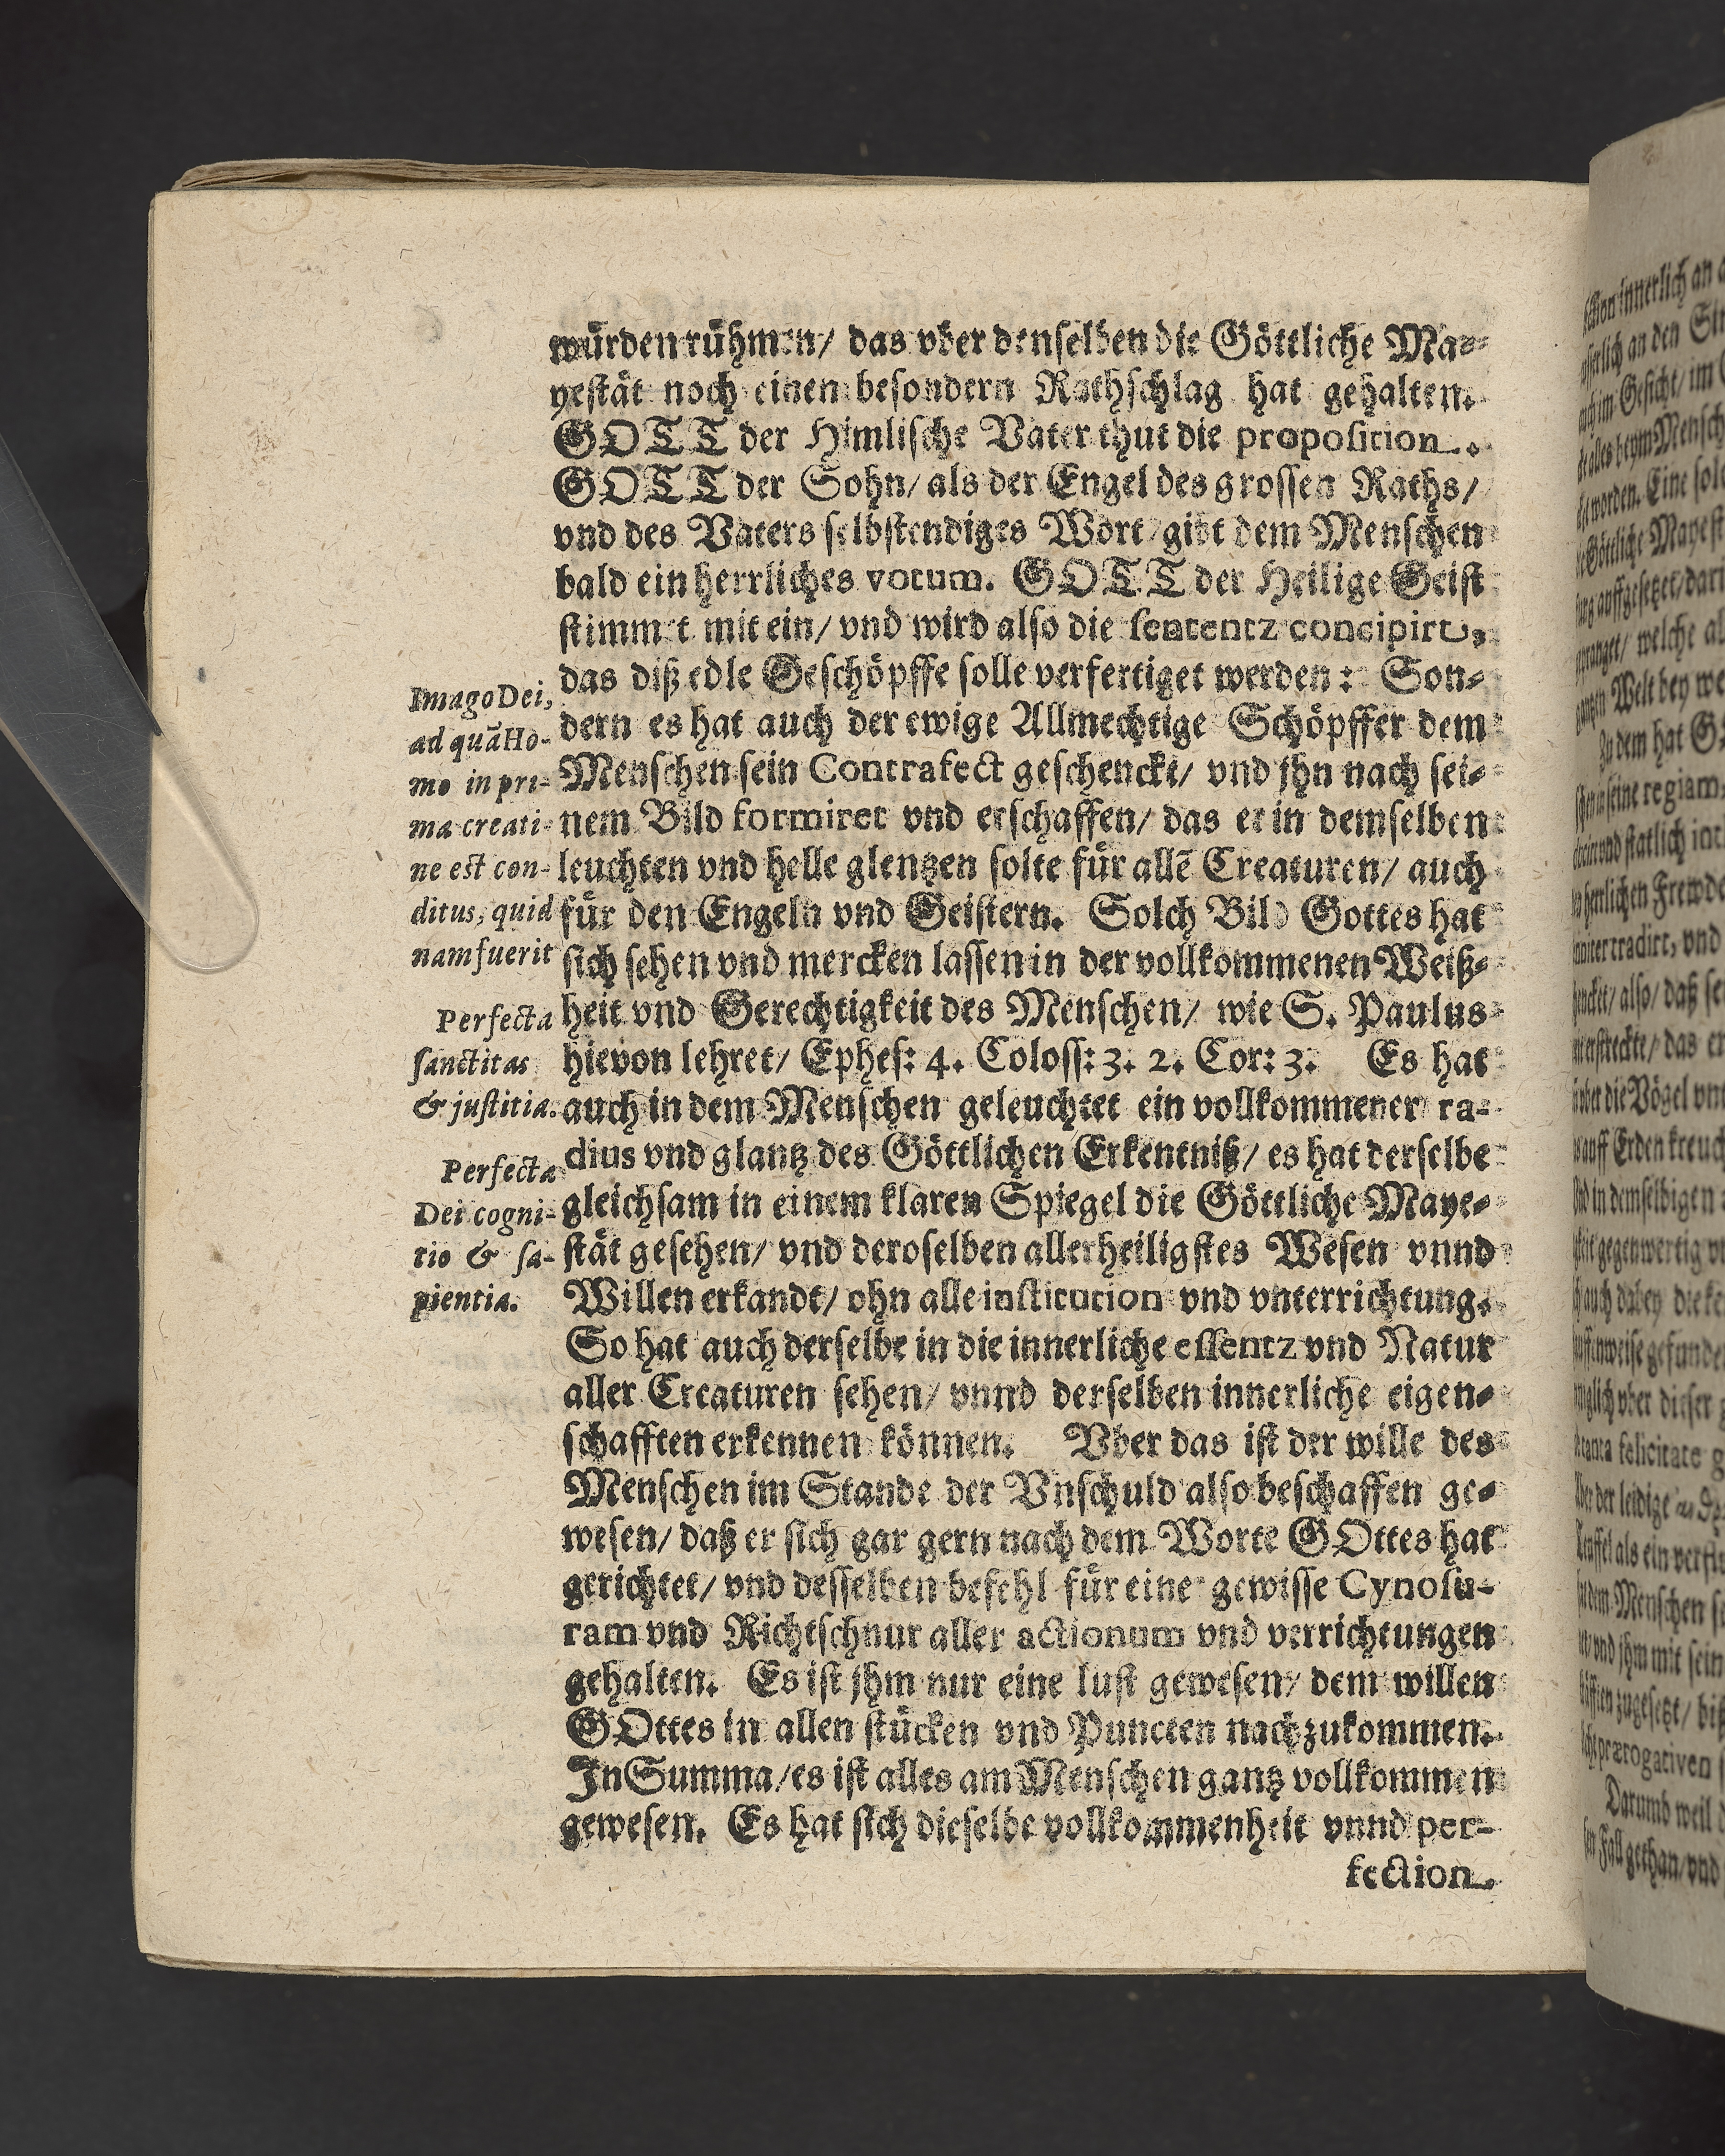 würden rühmen/ das vber denselben die Göttliche Ma-
yestät noch einen besondern Rathschlag hat gehalten.
GOTT der Himlische Vater thut die proposition.
GOTT der Sohn/ als der Engel des grossen Raths/
vnd des Vaters selbstendiges Wort/ gibt dem Menschen
bald ein herrliches votum. GOTT der Heilige Geist
stimmet mit ein/ vnd wird also die sententz concipirt,
das diß edle Geschöpffe solle verfertiget werden: Son-
dern es hat auch der ewige Allmechtige Schöpffer dem
Menschen sein Contrafect geschenckt/ vnd jhn nach sei-
nem Bild formiret vnd erschaffen/ das er in demselben
leuchten vnd helle glentzen solte für allē Creaturen/ auch
für den Engeln vnd Geistern. Solch Bild Gottes hat
sich sehen vnd mercken lassen in der vollkommenen Weiß-
heit vnd Gerechtigkeit des Menschen/ wie S. Paulus
hievon lehret/ Ephes: 4. Coloss: 3. 2. Cor: 3. Es hat
auch in dem Menschen geleuchtet ein vollkommener ra-
dius vnd glantz des Göttlichen Erkentniß/ es hat derselbe
gleichsam in einem klaren Spiegel die Göttliche Maye-
stät gesehen/ vnd deroselben allerheiligstes Wesen vnnd
Willen erkandt/ ohn alle institution vnd vnterrichtung.
So hat auch derselbe in die innerliche essentz vnd Natur
aller Creaturen sehen/ vnnd derselben innerliche eigen-
schafften erkennen können. Vber das ist der wille des
Menschen im Stande der Vnschuld also beschaffen ge-
wesen/ daß er sich gar gern nach dem Worte GOttes hat
gerichtet/ vnd desselben befehl für eine gewisse Cynosu-
ram vnd Richtschnur aller actionum vnd verrichtungen
gehalten. Es ist jhm nur eine lust gewesen/ dem willen
GOttes in allen stücken vnd Puncten nachzukommen.
In Summa/ es ist alles am Menschen gantz vollkommen
gewesen. Es hat sich dieselbe vollkommenheit vnnd per-
fection
Imago Dei,
ad quā Ho-
mo in pri-
ma creati-
ne est con-
ditus, quid
nam fuerit
Perfecta
sanctitas
& justitia.
Perfecta
Dei cogni-
tio & sa-
pientia.